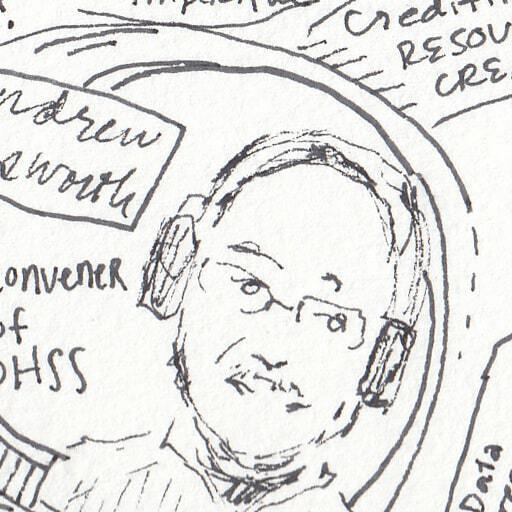 Crediting
RESOU
CRE
ndrew
sworth
convener
of
DHSS
Data